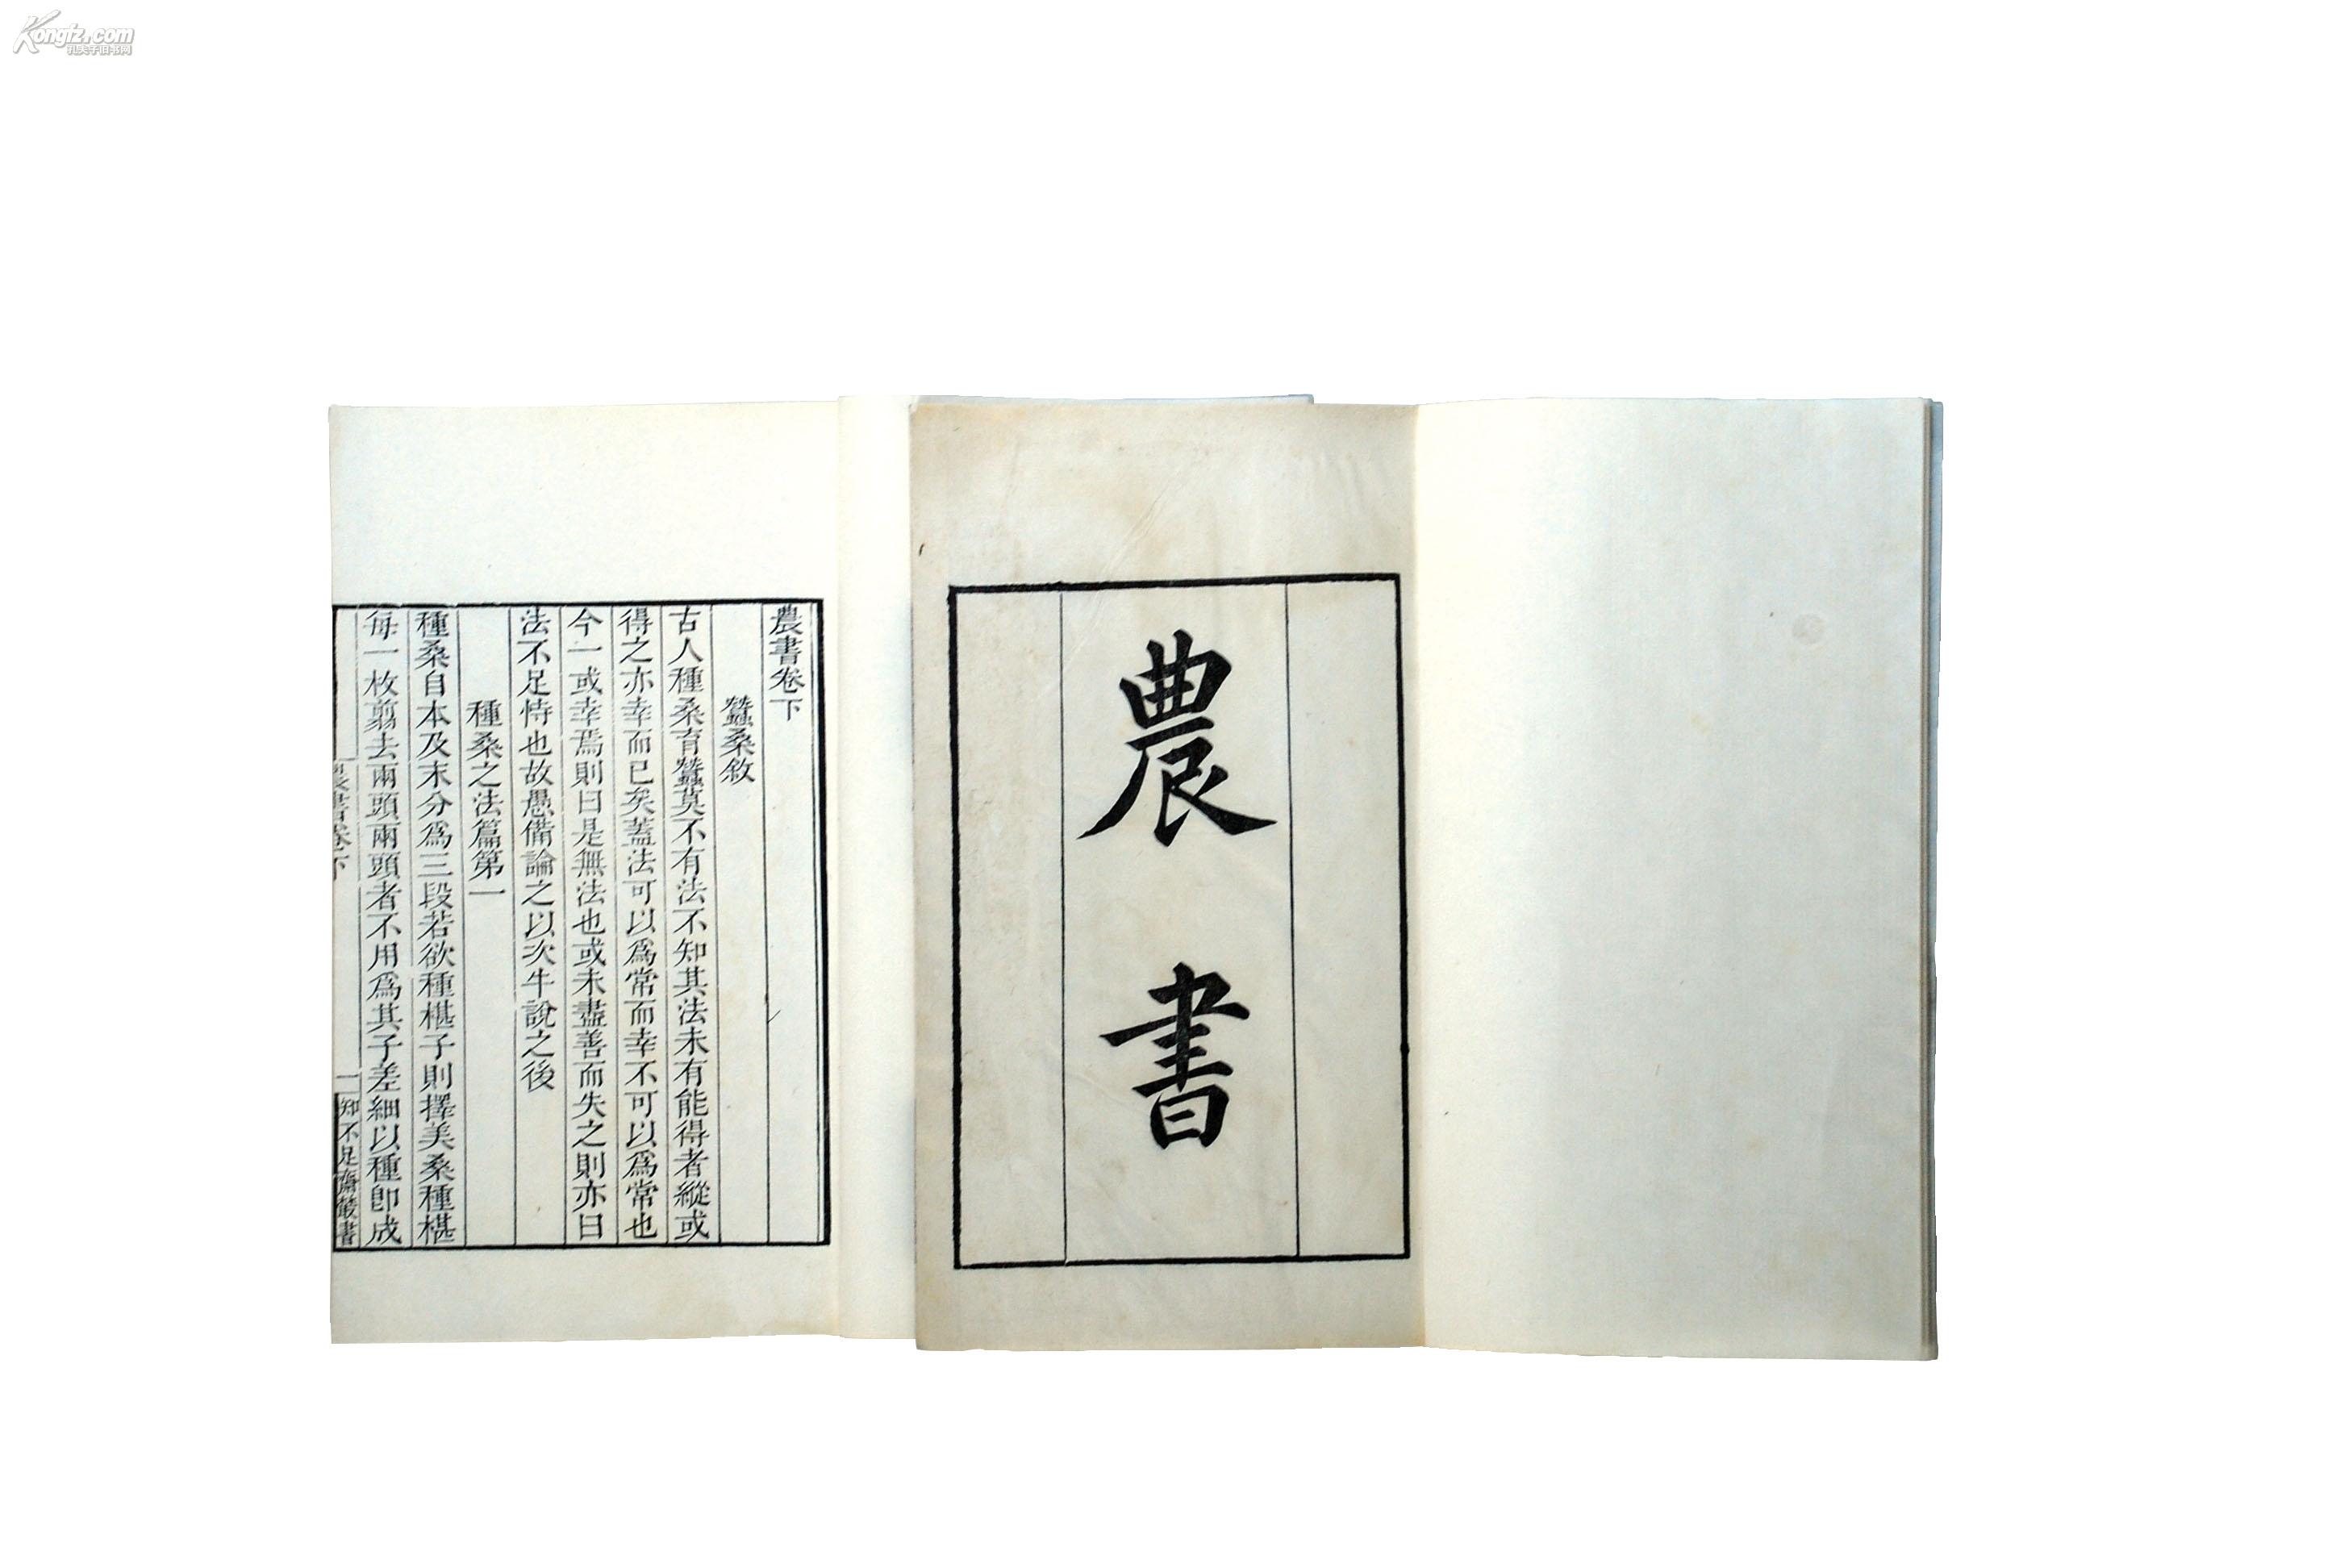 Kongfz.com
孔夫子旧书网
農書
農書卷下
蠶桑敘
古人種桑育蠶莫不有法不知其法未有能得者縱或
得之亦幸而已矣蓋法可以爲常而幸不可以爲常也
今一或幸焉則曰是無法也或未盡善而失之則亦曰
法不足恃也故愚備論之以次牛說之後
種桑之法篇第一
種桑自本及末分爲三段若欲種椹子則擇美桑種椹
每一枚翦去兩頭兩頭者不用爲其子差細以種卽成
農書卷下 一 知不足齋叢書